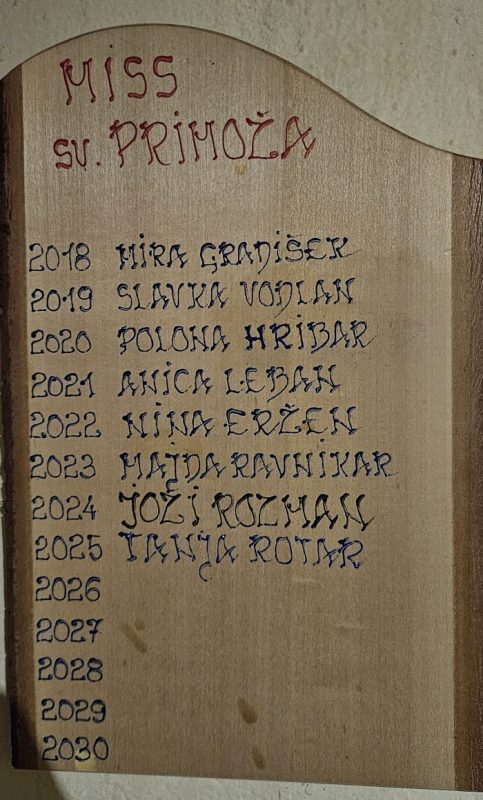 MISS
SV. PRIMOŽA
2018 MIRA GRADIŠEK
2019 SLAVKA VODLAN
2020 POLONA HRIBAR
2021 ANICA LEBAN
2022 NINA ERŽEN
2023 MAJDA RAVNIKAR
2024 JOŽI ROZMAN
2025 TANJA ROTAR
2026
2027
2028
2029
2030